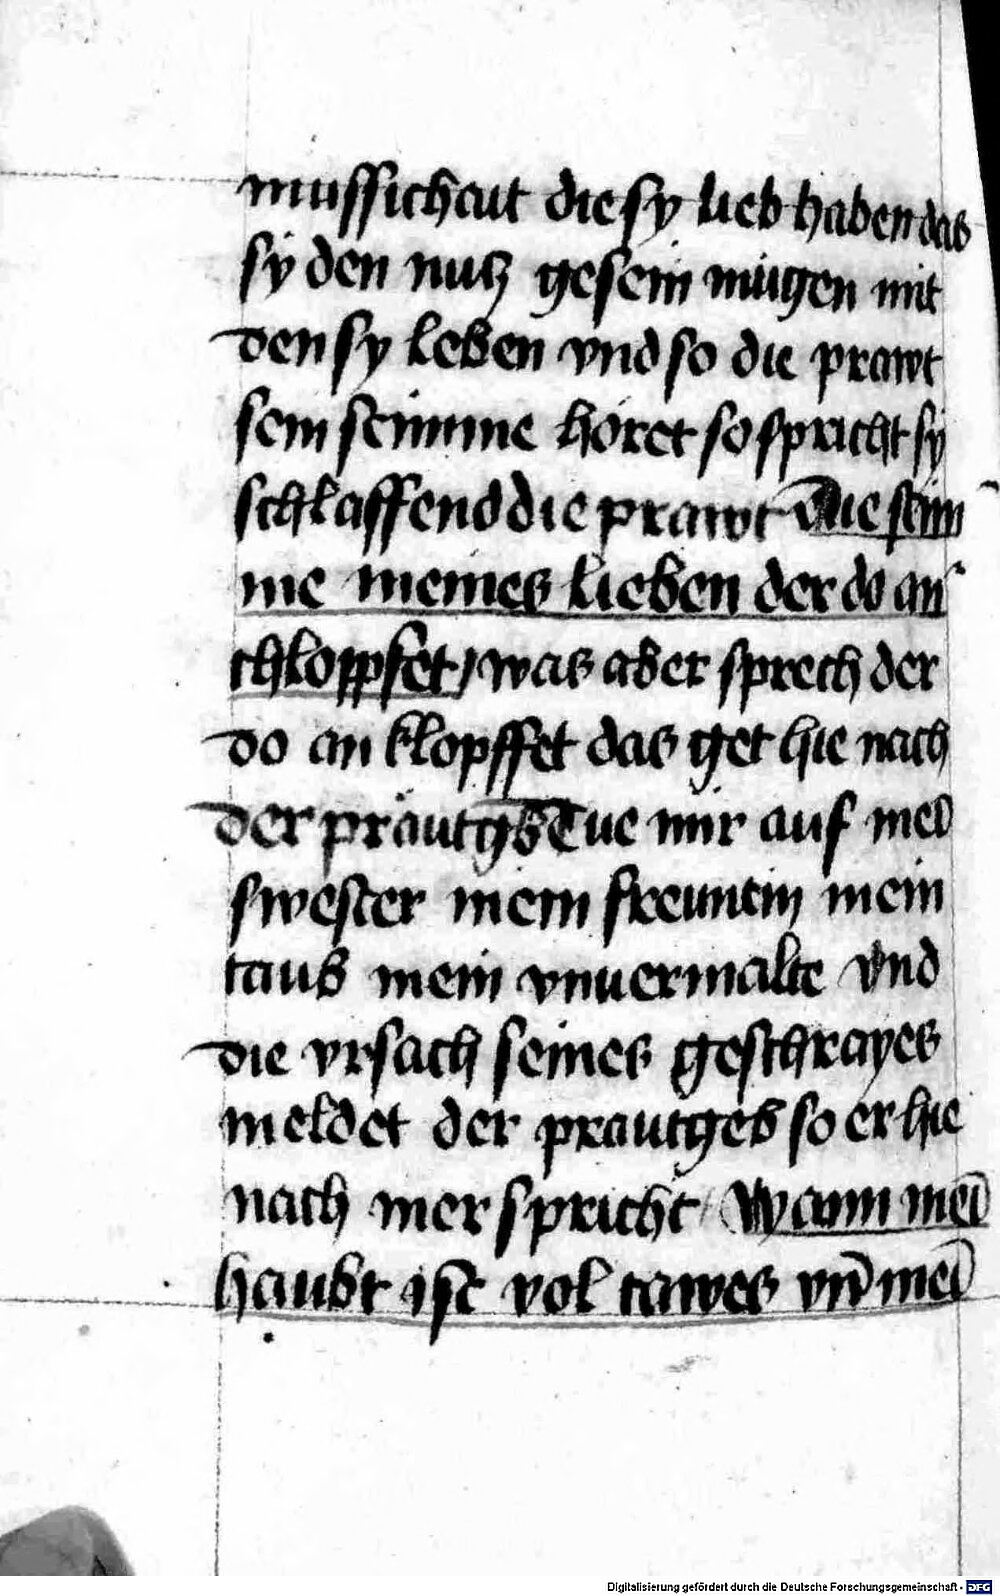 mussichait die sy lieb haben das
sy den nutz gesein mügen mit
den sy leben vnd so die prawt
sein stimme höret so spricht sy
schlaffend die prawt Die stim
me meines lieben der do an
chloppfet / was aber sprech der
do an klopffet das get hie nach
der präutgb Tue mir auf mei
swester mein freuntin mein
taub mein vnuermalte vnd
die vrsach seines geschrayes
meldet der prautgeb so er hie
nach mer spricht / Wann mei
haubt ist vol tawes vn̄ mei
Digitalisierung gefördert durch die Deutsche Forschungsgemeinschaft - DFG